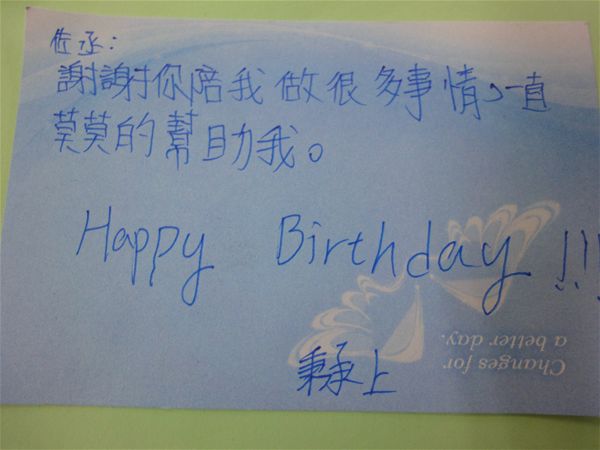 佐丞：
謝謝你陪我做很多事情，一直
莫莫的幫助我。
Happy Birthday!!!
秉承上
Changes for
a better day.